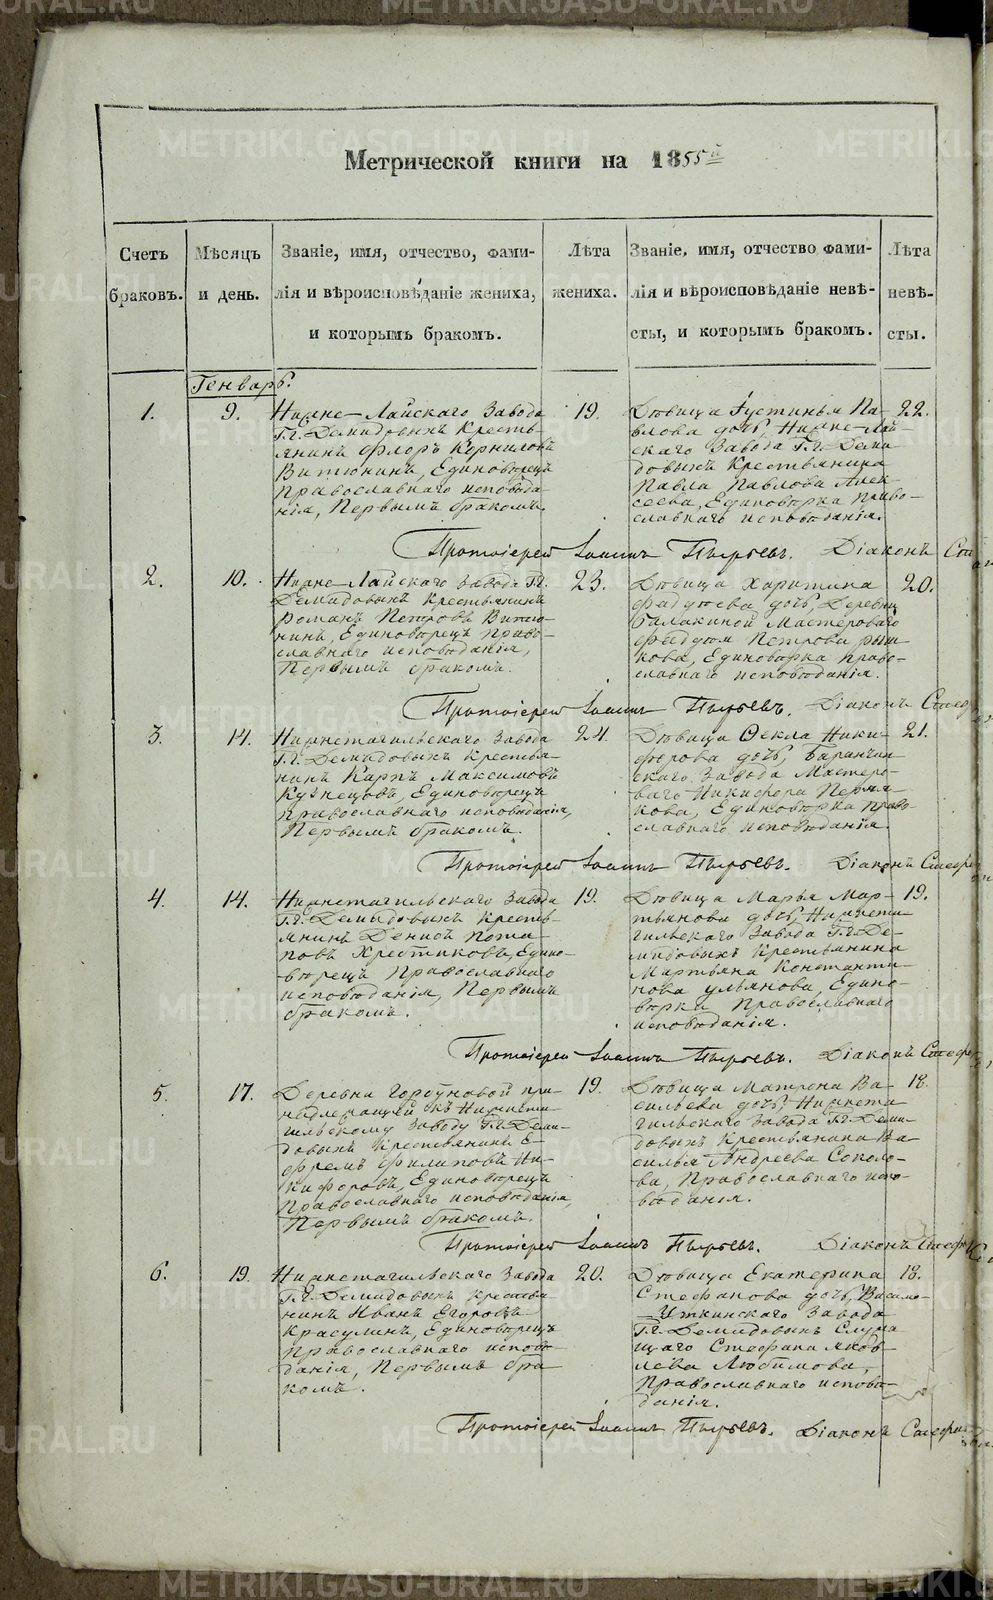 Метрической книги на 1855й
Счетъ браковъ.
Мѣсяцъ и день.
Званіе, имя, отчество, фами-
лія и вѣроисповѣданіе жениха,
и которымъ бракомъ.
Лѣта жениха.
Званіе, имя, отчество фами-
лія и вѣроисповѣданіе невѣ-
сты, и которымъ бракомъ.
Лѣта невѣ-
сты.
Генварь.
1.
9.
Нижне-Лайскаго завода
Г.г. Демидовыхъ кресть-
янинъ Флоръ Корниловъ
Витюнинъ, Единовѣрецъ
Православнаго исповѣда-
нія, Первымъ бракомъ.
19.
Дѣвица Іустинья Па-
влова дочь, Нижне-Лай-
скаго Завода Г.г. Деми-
довыхъ Крестьянина
Павла Павлова Алек-
сеева, Единовѣрка Право-
славнаго исповѣданія.
22.
Протоіерей Іоаннъ Пырьевъ. Діаконъ
2.
10.
Нижне-Лайскаго завода Г.г.
Демидовыхъ крестьянинъ
Романъ Петровъ Витю-
нинъ, Единовѣрецъ Право-
славнаго исповѣданія,
Первымъ бракомъ.
23.
Дѣвица Харитина
Фадѣева дочь, Деревни
Балакиной Мастероваго
Фадѣя Петрова Рыж-
кова, Единовѣрка Право-
славнаго исповѣданія.
20.
Протоіерей Іоаннъ Пырьевъ. Діаконъ
3.
14.
Нижнетагильскаго завода
Г.г. Демидовыхъ крестья-
нинъ Карпъ Максимовъ
Кузнецовъ, Единовѣрецъ
Православнаго исповѣданія,
Первымъ бракомъ.
24.
Дѣвица Ѳекла Ники-
форова дочь, Баранчин-
скаго завода Мастеро-
ваго Никифора Пермя-
кова, Единовѣрка Право-
славнаго исповѣданія.
21.
Протоіерей Іоаннъ Пырьевъ. Діаконъ
4.
14.
Нижнетагильскаго завода
Г.г. Демидовыхъ кресть-
янинъ Денисъ Пота-
повъ Хрестиковъ, Едино-
вѣрецъ Православнаго
исповѣданія, Первымъ
бракомъ.
19.
Дѣвица Марья Мар-
тьянова дочь, Нижнета-
гильскаго Завода Г.г. Де-
мидовыхъ Крестьянина
Мартьяна Константи-
нова Ульянова, Едино-
вѣрка Православнаго
исповѣданія.
19.
Протоіерей Іоаннъ Пырьевъ. Діаконъ
5.
17.
Деревни Горбуновой при-
надлежащей къ Нижнета-
гильскому заводу Г.г. Деми-
довыхъ крестьянинъ Е-
фремъ Филиповъ Ни-
кифоровъ, Единовѣрецъ
Православнаго исповѣданія,
Первымъ бракомъ.
19.
Дѣвица Матрона Ва-
сильева дочь, Нижнета-
гильскаго завода Г.г. Деми-
довыхъ крестьянина Ва-
силья Андреева Соколо-
ва, Православнаго испо-
вѣданія.
18.
Протоіерей Іоаннъ Пырьевъ. Діаконъ
6.
19.
Нижнетагильскаго завода
Г.г. Демидовыхъ крестья-
нинъ Иванъ Егоровъ
Красулинъ, Единовѣрецъ
Православнаго исповѣ-
данія, Первымъ бра-
комъ.
20.
Дѣвица Екатерина
Стефанова дочь, Висимо-
Уткинскаго завода
Г.г. Демидовыхъ Служа-
щаго Стефана Яков-
лева Любимова,
Православнаго исповѣ-
данія.
18.
Протоіерей Іоаннъ Пырьевъ. Діаконъ
METRIKI.GASO-URAL.RU